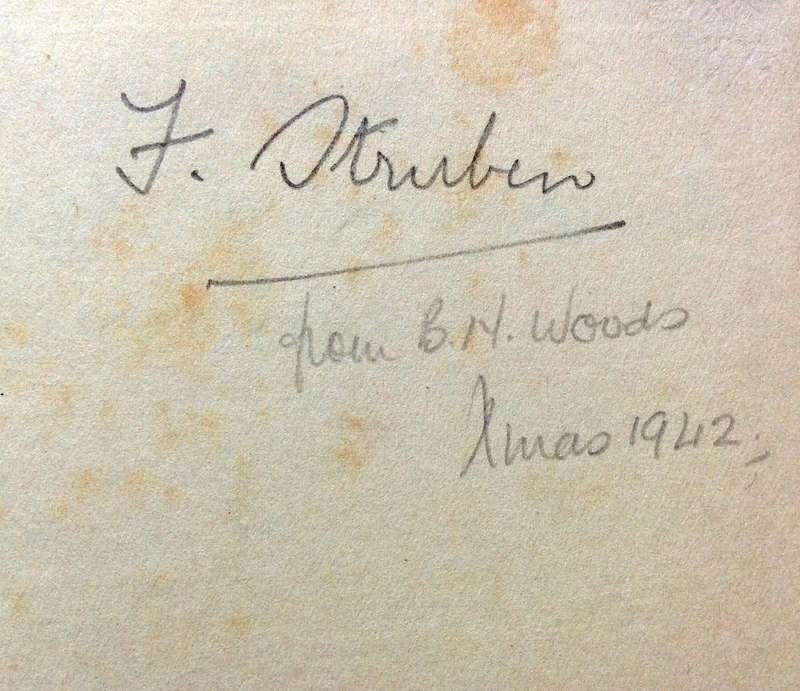 F. Struben
from B.H. Woods
Xmas 1942.